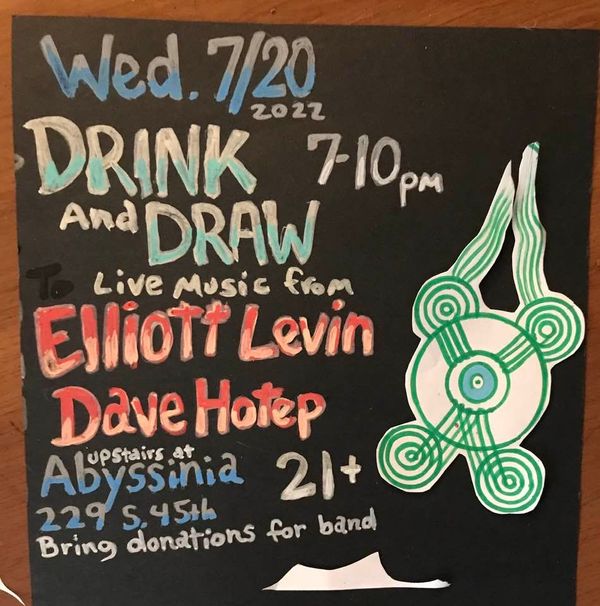 Wed. 7/20
2022
DRINK
And DRAW
7-10pm
To Live Music from
Elliott Levin
Dave Hotep
upstairs at
Abyssinia
21+
229 S. 45th
Bring donations for band